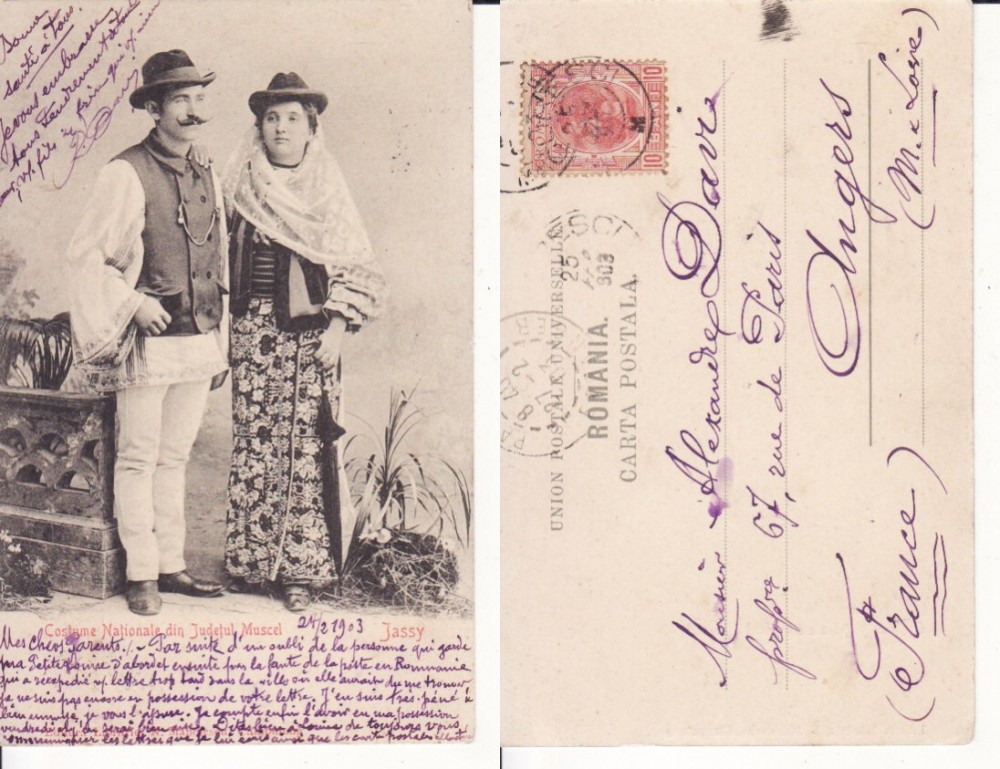 Bonne
santé à tous.
Je vous embrasse
tous tendrement
vp. fils
Costume Nationale din Judeţul Muscel
24/2 1903
Jassy
Mes chers Parents. / - Par suite d'un oubli de la personne qui garde
ma Petite Louise d'abord et ensuite par la faute de la poste en Roumanie
qui a réexpédié vp. lettre trop tard dans la ville où elle aurait du me trouver
je ne suis pas encore en possession de votre lettre. J'en suis très peiné &
bien ennuyé, je vous l'assure. Je compte enfin l'avoir en ma possession
vendredi et j'en serai bien aise. Dites bien à Louise de toujours vous
communiquer les lettres que je lui écris ainsi que les cartes postales
ROMANIA
10
10
UNION POSTALE UNIVERSELLE
ROMÂNIA.
CARTA POSTALA.
25
903
Monsieur Alexandre Davi
profr. 67, rue de Paris
Angers
(M. & Loire)
(France)